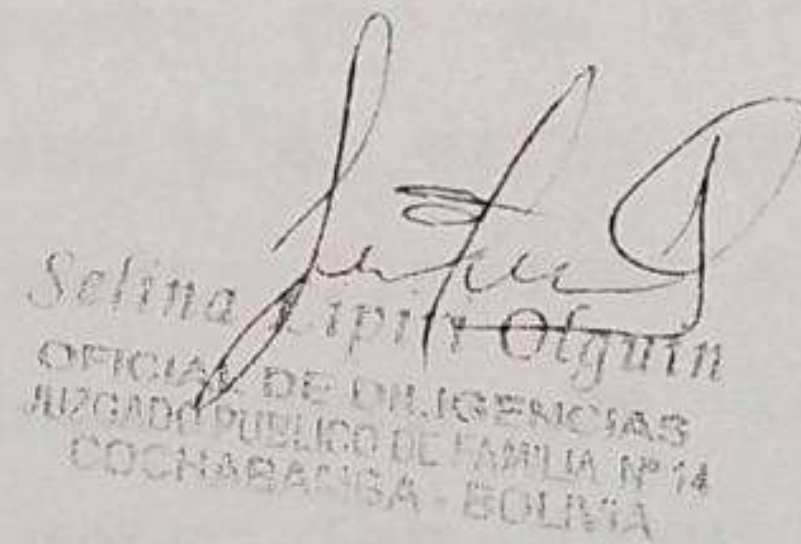 Selina Olguin
OFICIAL DE DILIGENCIAS
JUZGADO PUBLICO DE FAMILIA Nº 14
COCHABAMBA - BOLIVIA